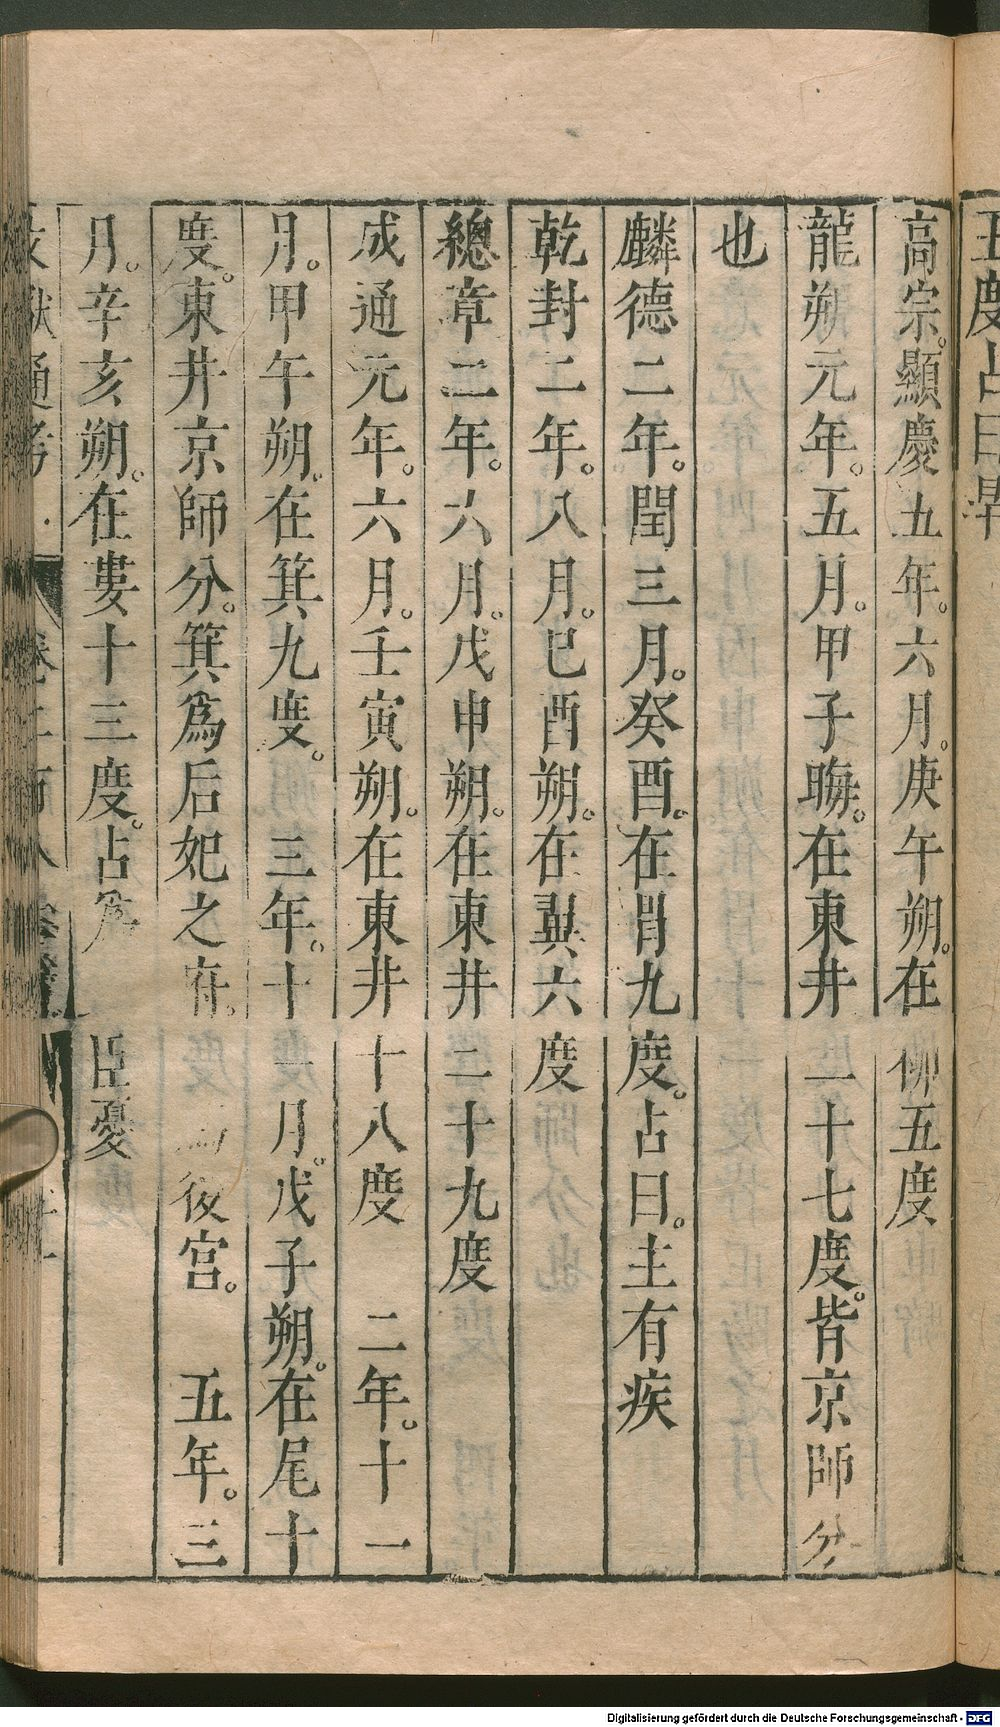 五度占曰旱
高宗。顯慶五年。六月。庚午朔。在柳五度
龍朔元年。五月。甲子晦。在東井二十七度。皆京師分
也
麟德二年。閏三月。癸酉。在胃九度。占曰。主有疾
乾封二年。八月。已酉朔。在翼六度
總章二年。六月。戊申朔。在東井二十九度
咸通元年。六月。壬寅朔。在東井十八度　二年。十一
月。甲午朔。在箕九度。　三年。十一月。戊子朔。在尾十
度。東井京師分。箕爲后妃之府。爲後宮。　五年。三
月。辛亥朔。在婁十三度。占爲臣憂
通考
Digitalisierung gefördert durch die Deutsche Forschungsgemeinschaft - DFG